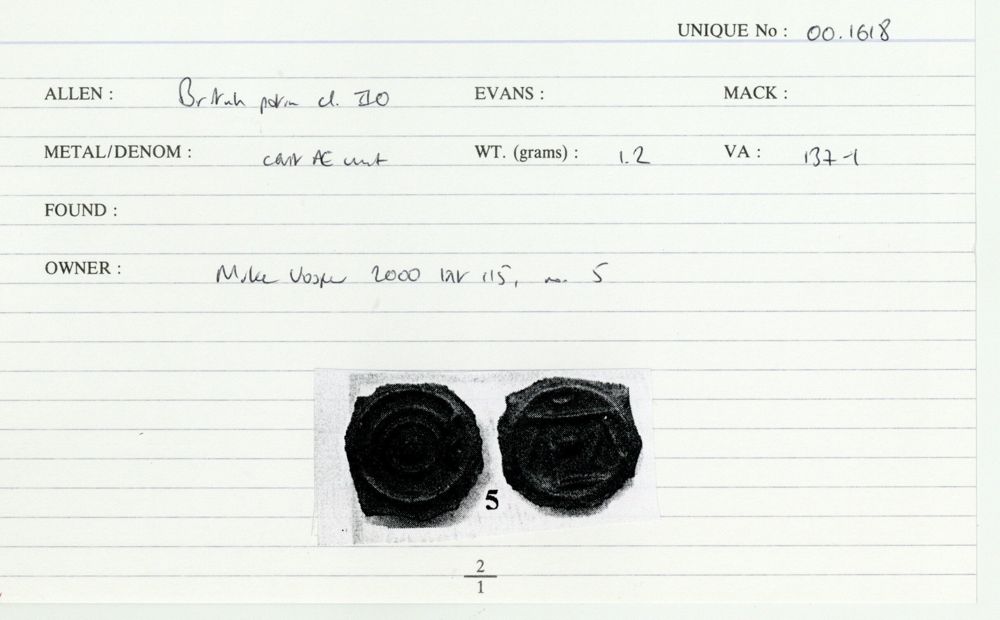 UNIQUE No : 00.1618
ALLEN : British potin cl. IIO EVANS : MACK :
METAL/DENOM : cast AE unit WT. (grams) : 1.2 VA : 137-1
FOUND :
OWNER : Mike Vosper 2000 115, no. 5
5
2
1